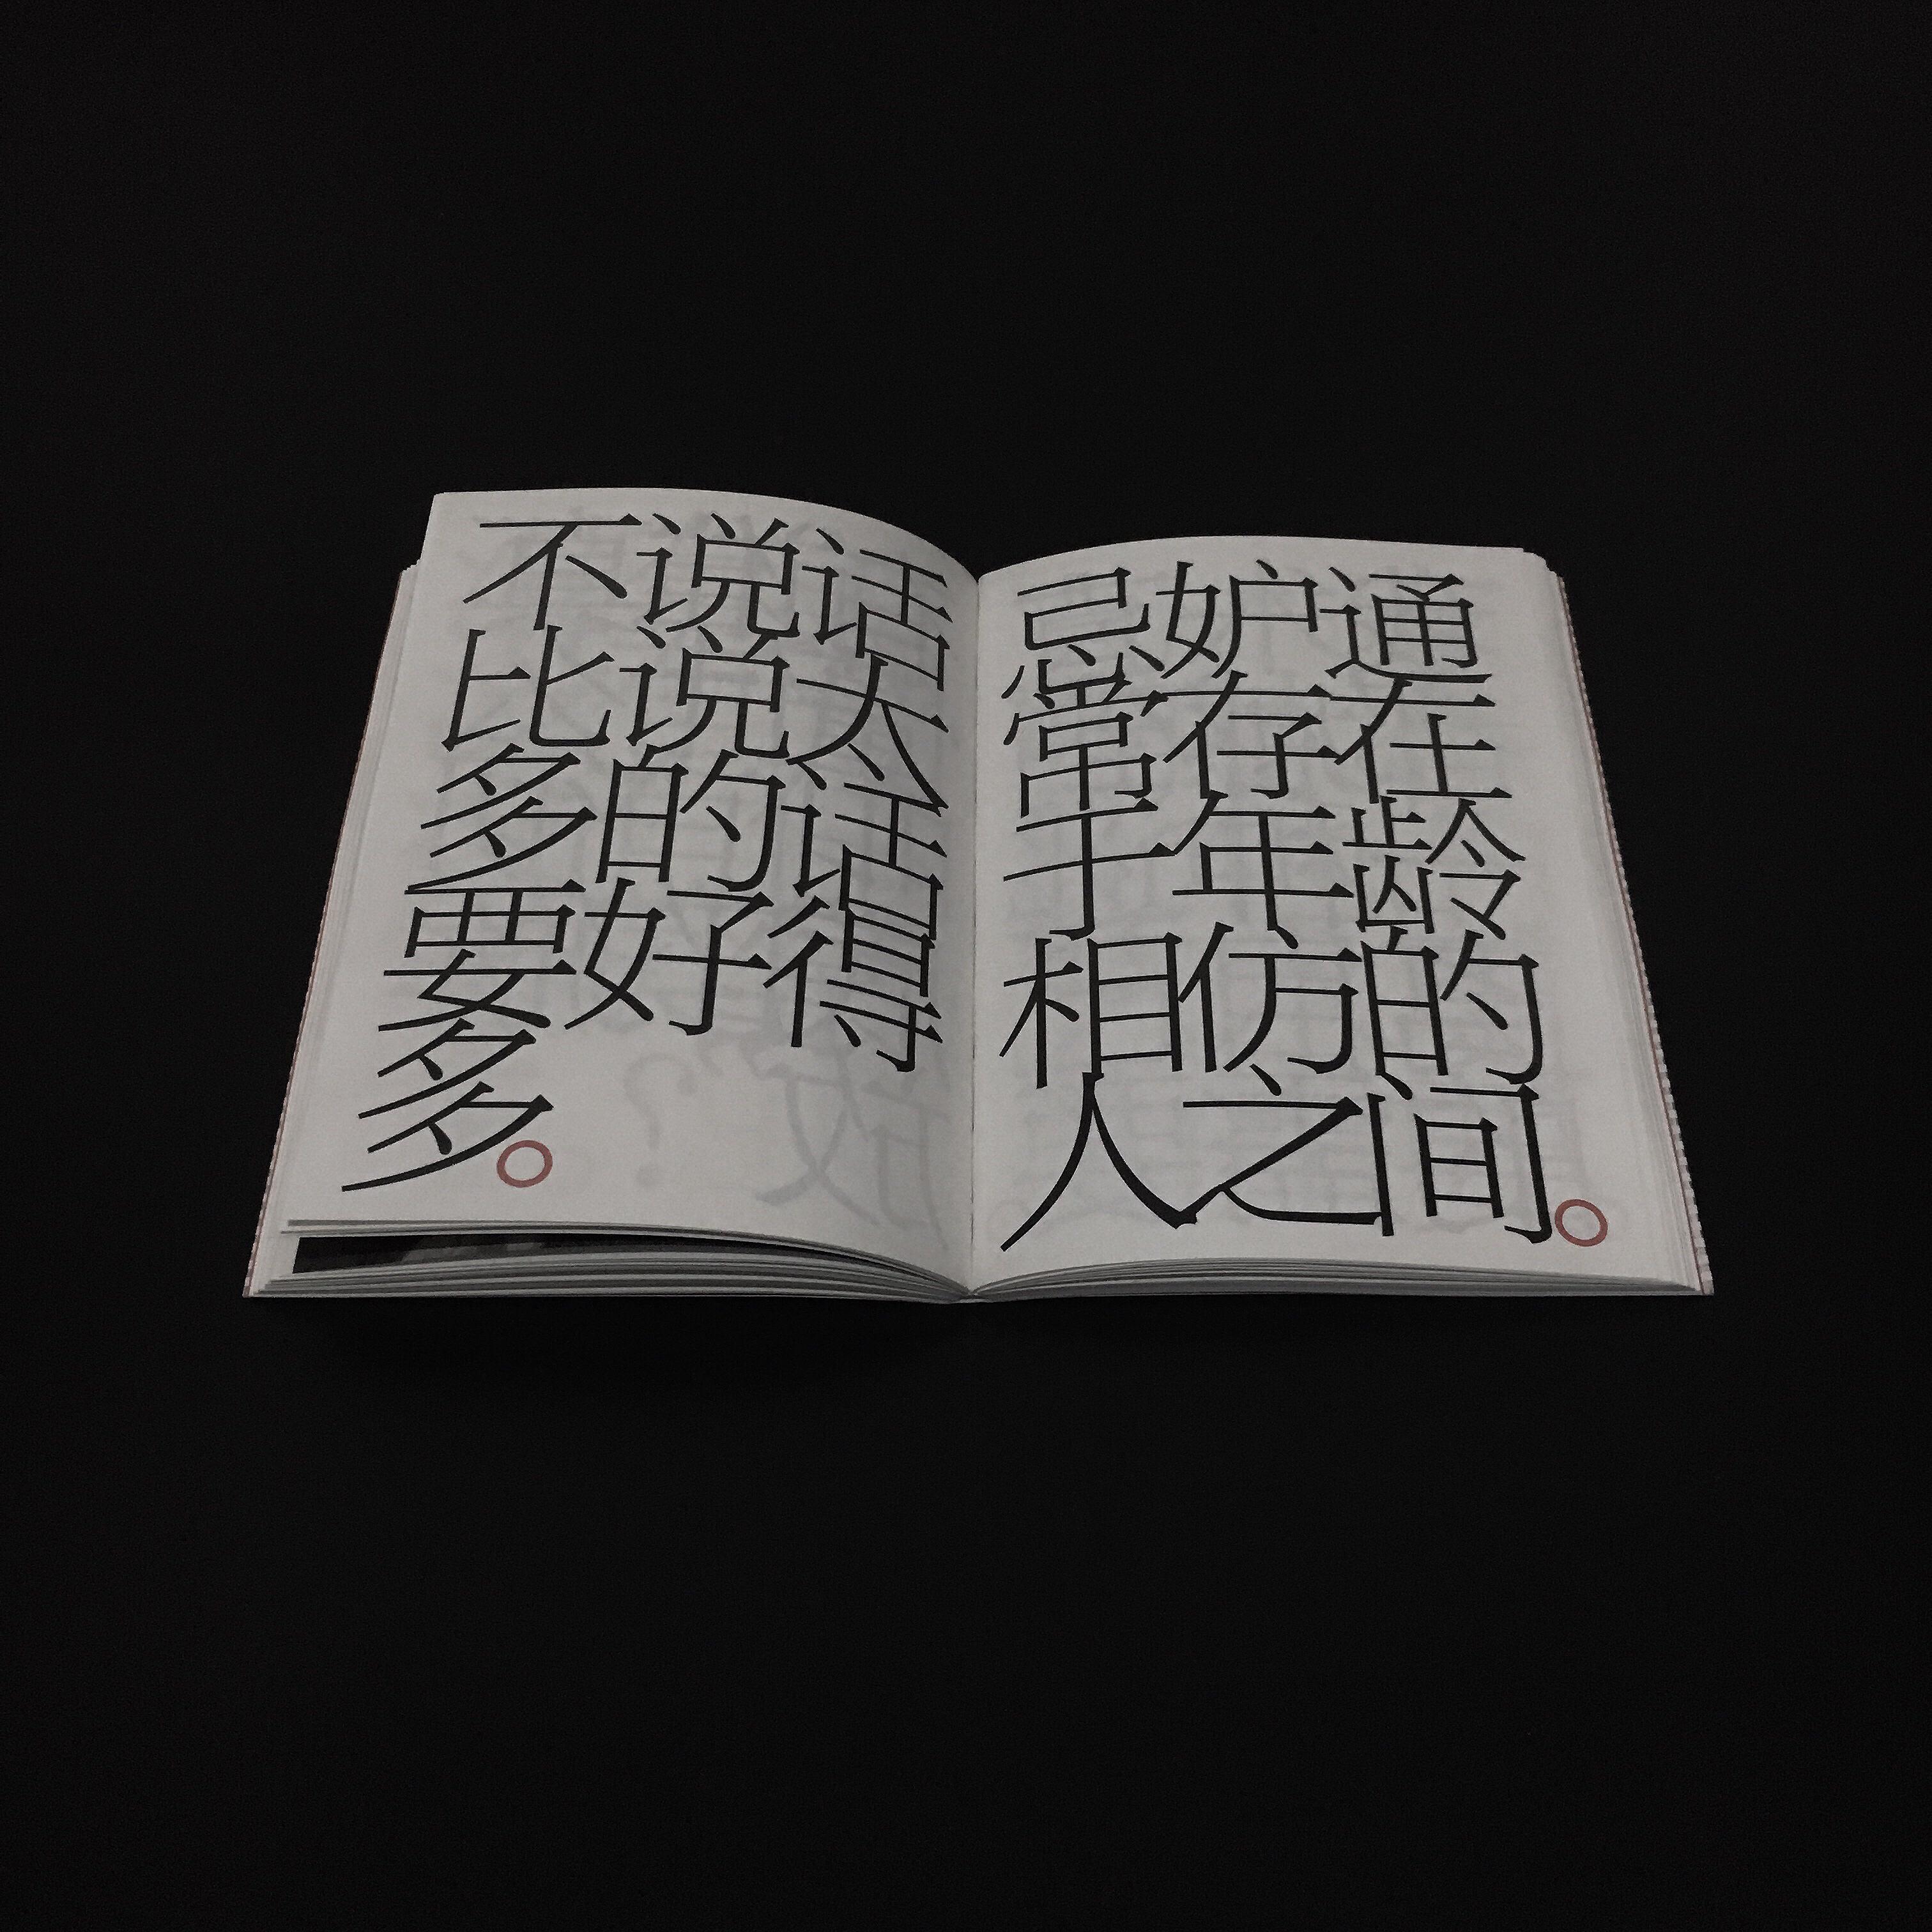 不说话
比说太
多的话
要好得
多。
忌妒通
常存在
于年龄
相仿的
人之间。